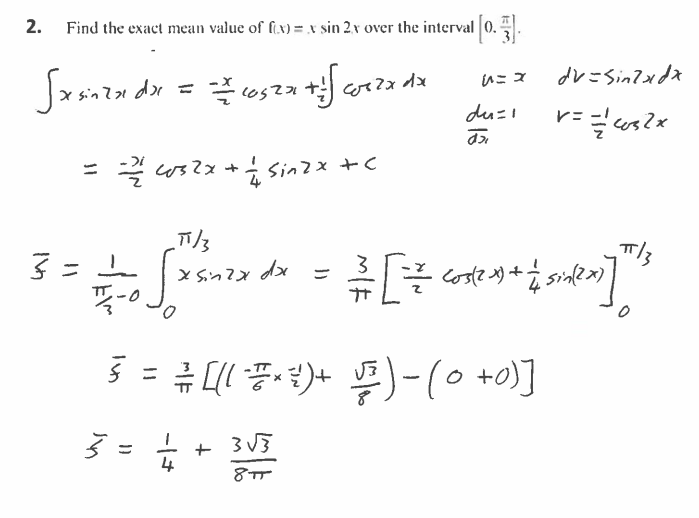 2. Find the exact mean value of f(x) = x sin 2x over the interval [0, π/3].
∫ x sin2x dx = -x/2 cos2x + 1/2 ∫ cos2x dx u = x dv = sin2x dx
du/dx = 1 v = -1/2 cos2x
= -x/2 cos2x + 1/4 sin2x + c
f̄ = 1/(π/3 - 0) ∫₀^(π/3) x sin2x dx = 3/π [-x/2 cos(2x) + 1/4 sin(2x)]₀^(π/3)
f̄ = 3/π [((-π/6 × -1/2) + √3/8) - (0 + 0)]
f̄ = 1/4 + 3√3/8π